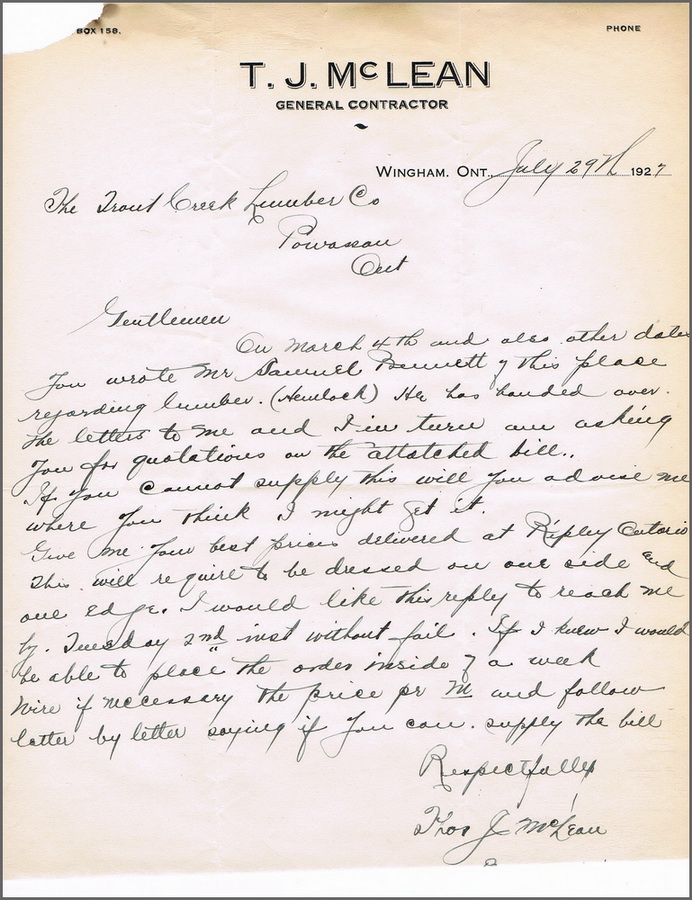 BOX 158.
PHONE
T. J. McLEAN
GENERAL CONTRACTOR
WINGHAM, ONT., July 29th 1927
The Trout Creek Lumber Co
Powassan
Ont
Gentlemen
On March 4th and also other dates
You wrote Mr Samuel Bennett of this place
regarding lumber. (Hemlock) He has handed over
the letters to me and I in turn am asking
You for quotations on the attatched bill..
If You cannot supply this will You advise me
where You think I might get it.
Give me Your best prices delivered at Ripley Ontario
This will require to be dressed on one side and
one edge. I would like this reply to reach me
by. Tuesday 2nd inst without fail. If I knew I would
be able to place the order inside of a week
Wire if necessary the price pr M and follow
letter by letter saying if You can. supply the bill
Respectfully
Thos J. McLean